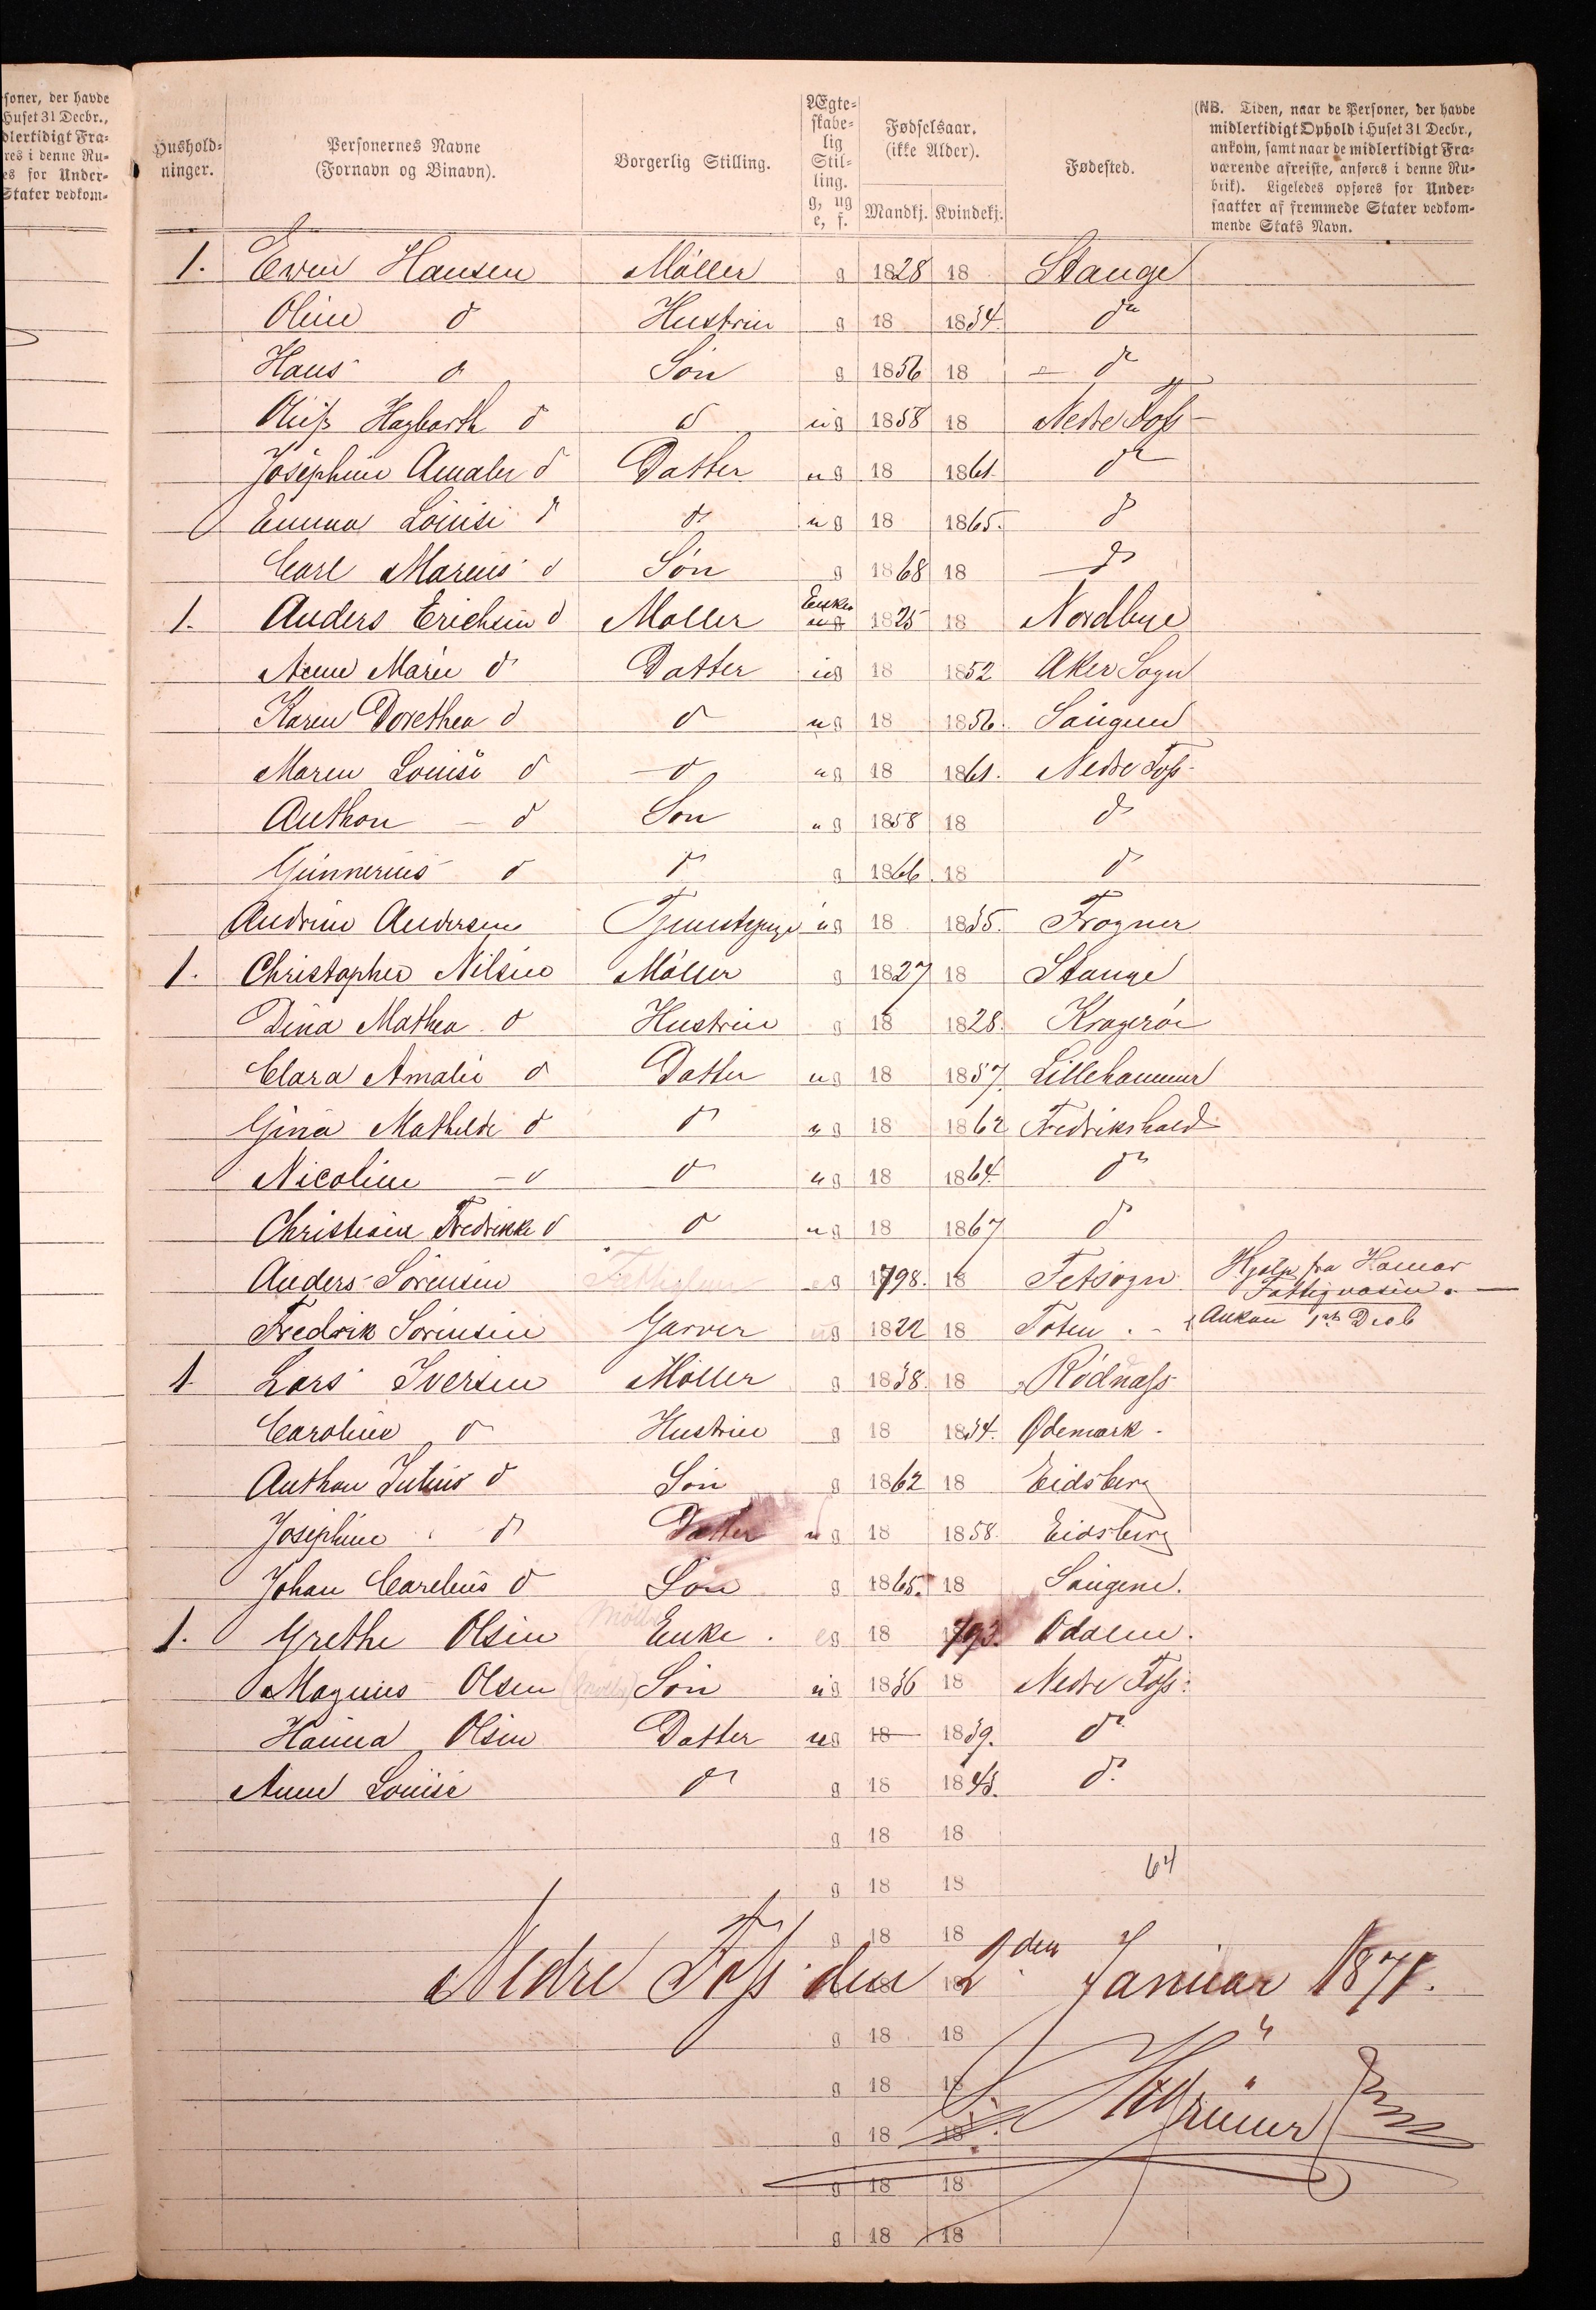 soner, der havde
Huset 31 Decbr.,
dlertidigt Fra-
res i denne Ru-
es for Under-
Stater vedkom-
Hushold-
ninger.
Personernes Navne
(Fornavn og Binavn).
Borgerlig Stilling.
Ægte-
skabe-
lig
Stil-
ling.
g, ug
e, f.
Fødselsaar.
(ikke Alder).
Mandkj. Kvindekj.
Fødested.
(NB. Tiden, naar de Personer, der havde
midlertidigt Ophold i Huset 31 Decbr.,
ankom, samt naar de midlertidigt Fra-
værende afreiste, anføres i denne Ru-
brik). Ligeledes opføres for Under-
saatter af fremmede Stater vedkom-
mende Stats Navn.
1. Even Hansen Möller g 1828 18 Stange
Oline d Hustrue g 18 1834. do
Hans d Søn g 1856 18 d
Hagbarth d d ug 1858 18 Nedre Foss
Josephine Amalie d Datter ug 18 1861. d
Emma Louise d d ug 18 1865. d
Carl Marcus d Søn g 1868 18 d
1. Anders Erichsen d Møller Enke ug 1825 18 Nordbye
Anne Marie d Datter ug 18 1852 Aker Sogn
Karen Dorethea d d ug 18 1856. Saugene
Maren Louise d d ug 18 1861. Nedre Foss
Anthon - d Søn ug 1858 18 d
Gunnerius d d g 1866 18 d
Andrine Andersen Tjenestepige ug 18 1835. Frogner
1. Christopher Nilsen Möller g 1827 18 Stange
Dina Mathea d Hustrue g 18 1828. Kragerøe
Clara Amalie d Datter ug 18 1857. Lillehammer
Gina Mathilde d d ug 18 1862 Fredrikshald
Nicoline - d d ug 18 1864. do
Christiane Fredrikke d d ug 18 1867 d
Anders Sørensen eg 1798. 18 Fetsogn Hjælp fra Hamar
Fattigvæsen.
Fredrik Sørensen Garver ug 1822 18 Toten. Ankom 1st Decb
1 Lars Iversen Møller g 1838. 18 Rødnæss
Caroline d Hustrue g 18 1834. Ødemark.
Anthon Julius d Søn g 1862 18 Eidsberg
Josephine d Datter ug 18 1858. Eidsberg
Johan Carelius d Søn g 1865. 18 Saugene.
1. Grethe Olsen Enke. eg 18 1793. Odalen.
Magnus Olsen Søn ug 1836 18 Nedre Foss.
Hanna Olsen Datter ug 18 1839. do
Anne Louise d g 18 1843. do
g 18 18
64
g 18 18
g 18 18
Nedre Foss den 2den Januar 1871.
18 18
g 18 18
g 18 18
Grüner
g 18 18
g 18 18
g 18 18